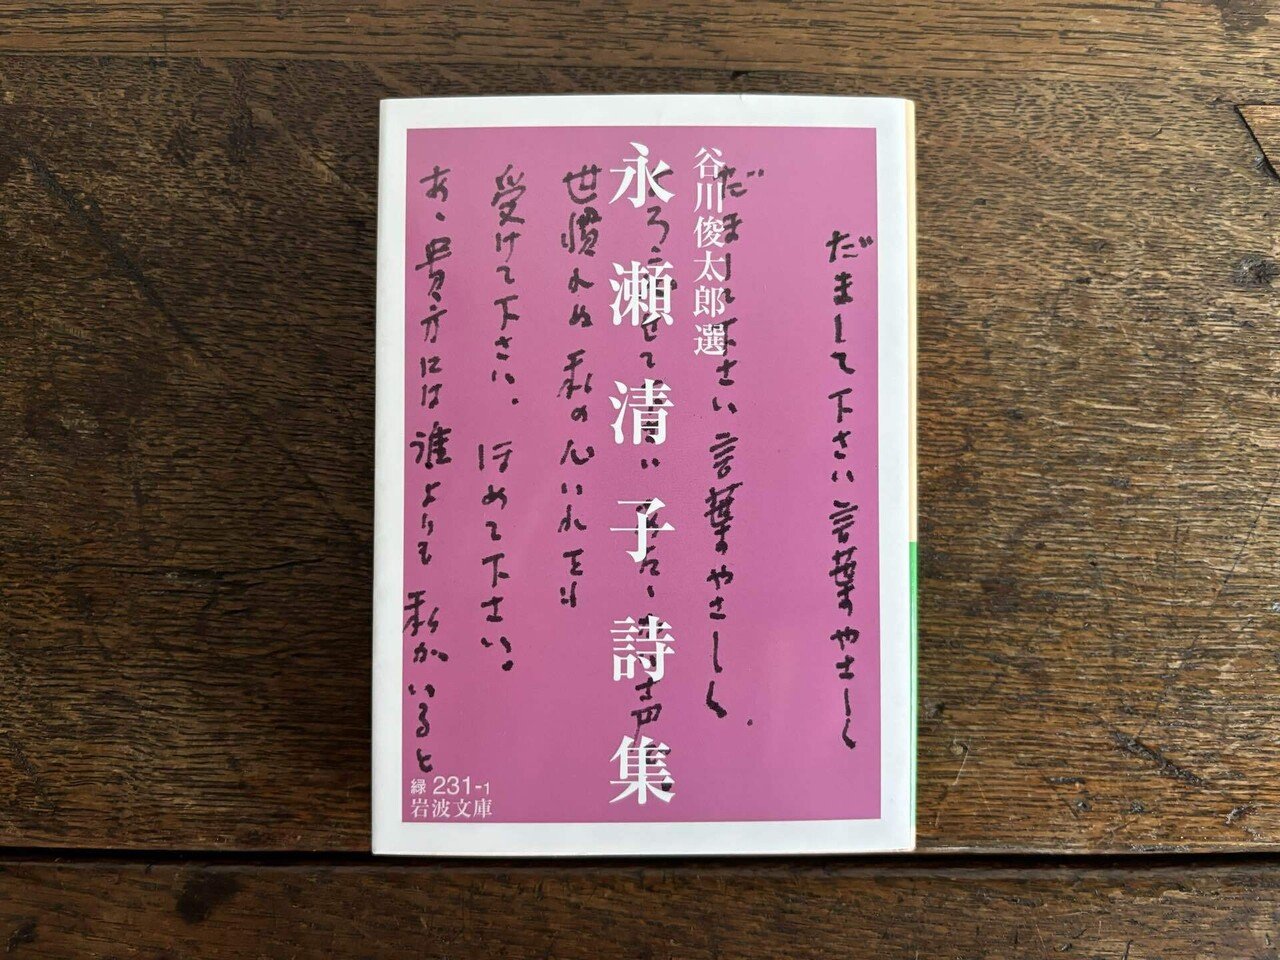 だまして下さい言葉やさしく
だまして下さい言葉やさしく
谷川俊太郎選
永瀬清子詩集
よろこばせて下さい あたゝかい声で
世慣れぬ私の心いれをも
受けて下さい、ほめて下さい。
あゝ貴方には誰よりも私がいると
緑 231-1
岩波文庫